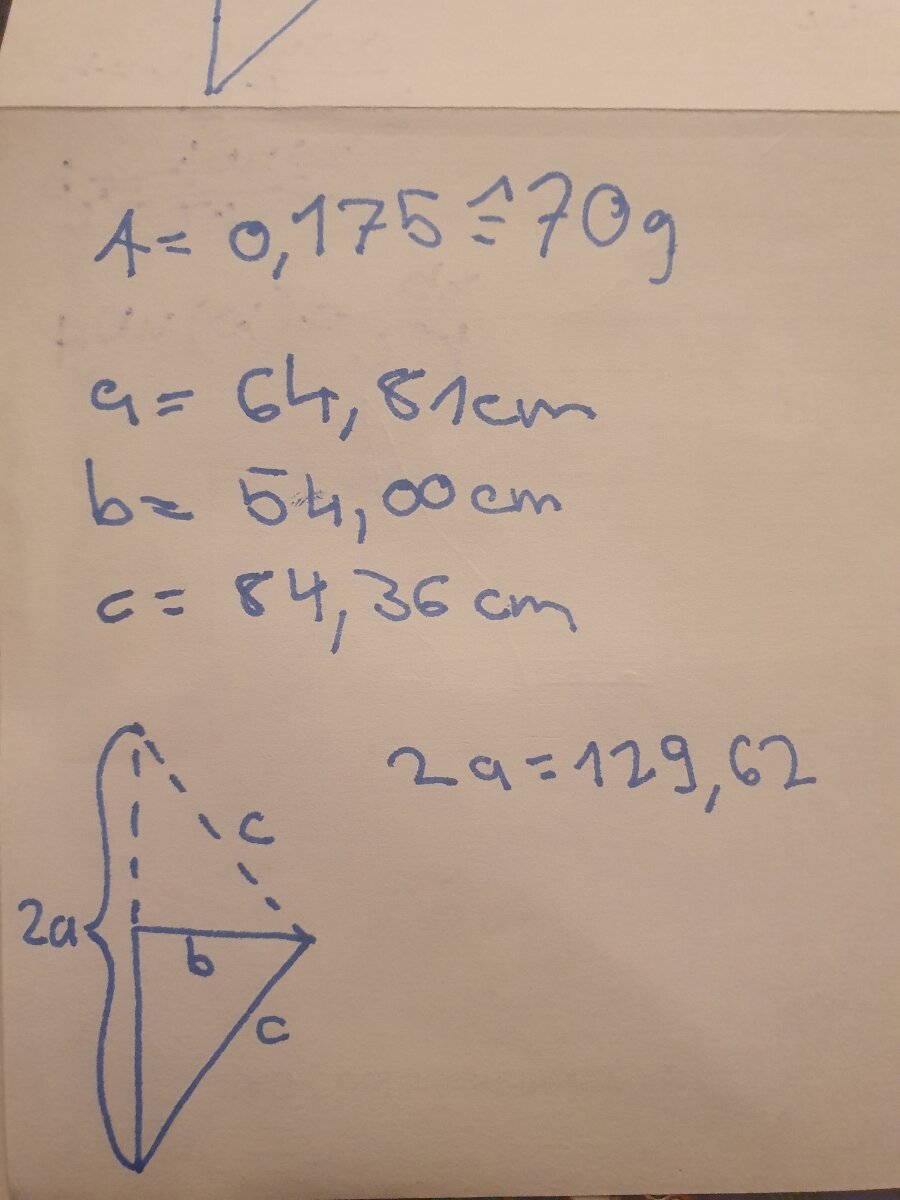 A = 0,175 ≙ 70g
a = 64,81cm
b = 54,00 cm
c = 84,36 cm
2a = 129,62
c
2a
b
c